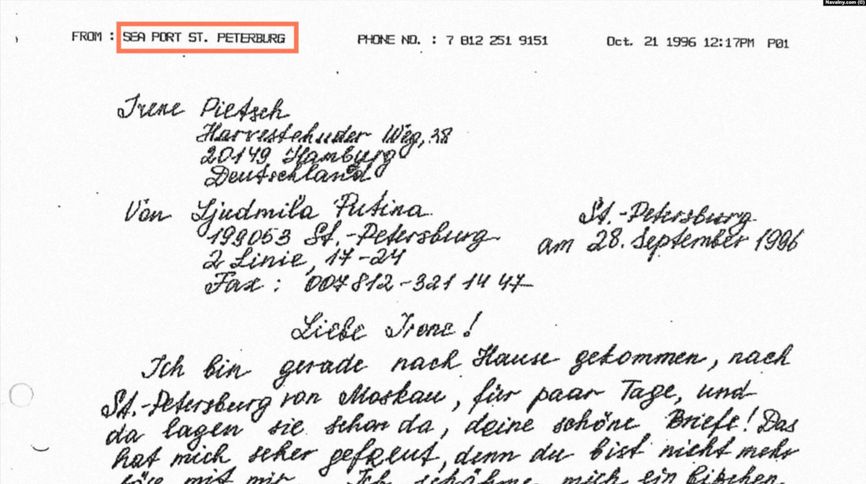 Navalny.com (©)
FROM : SEA PORT ST. PETERBURG PHONE NO. : 7 812 251 9151 Oct. 21 1996 12:17PM P01
Irene Pietsch
Harvestehuder Weg, 38
20149 Hamburg
Deutschland
Von Ljudmila Putina
199053 St.-Petersburg
2 Linie, 17-24
Fax : 007 812-321 14 47
St.-Petersburg
am 28. September 1996
Liebe Irene!
Ich bin gerade nach Hause gekommen, nach
St.-Petersburg von Moskau, für paar Tage, und
da lagen sie schon da, deine schöne Briefe! Das
hat mich seher gefreut, denn du bist nicht mehr
böse mit mir. Ich schähme mich ein bißchen,